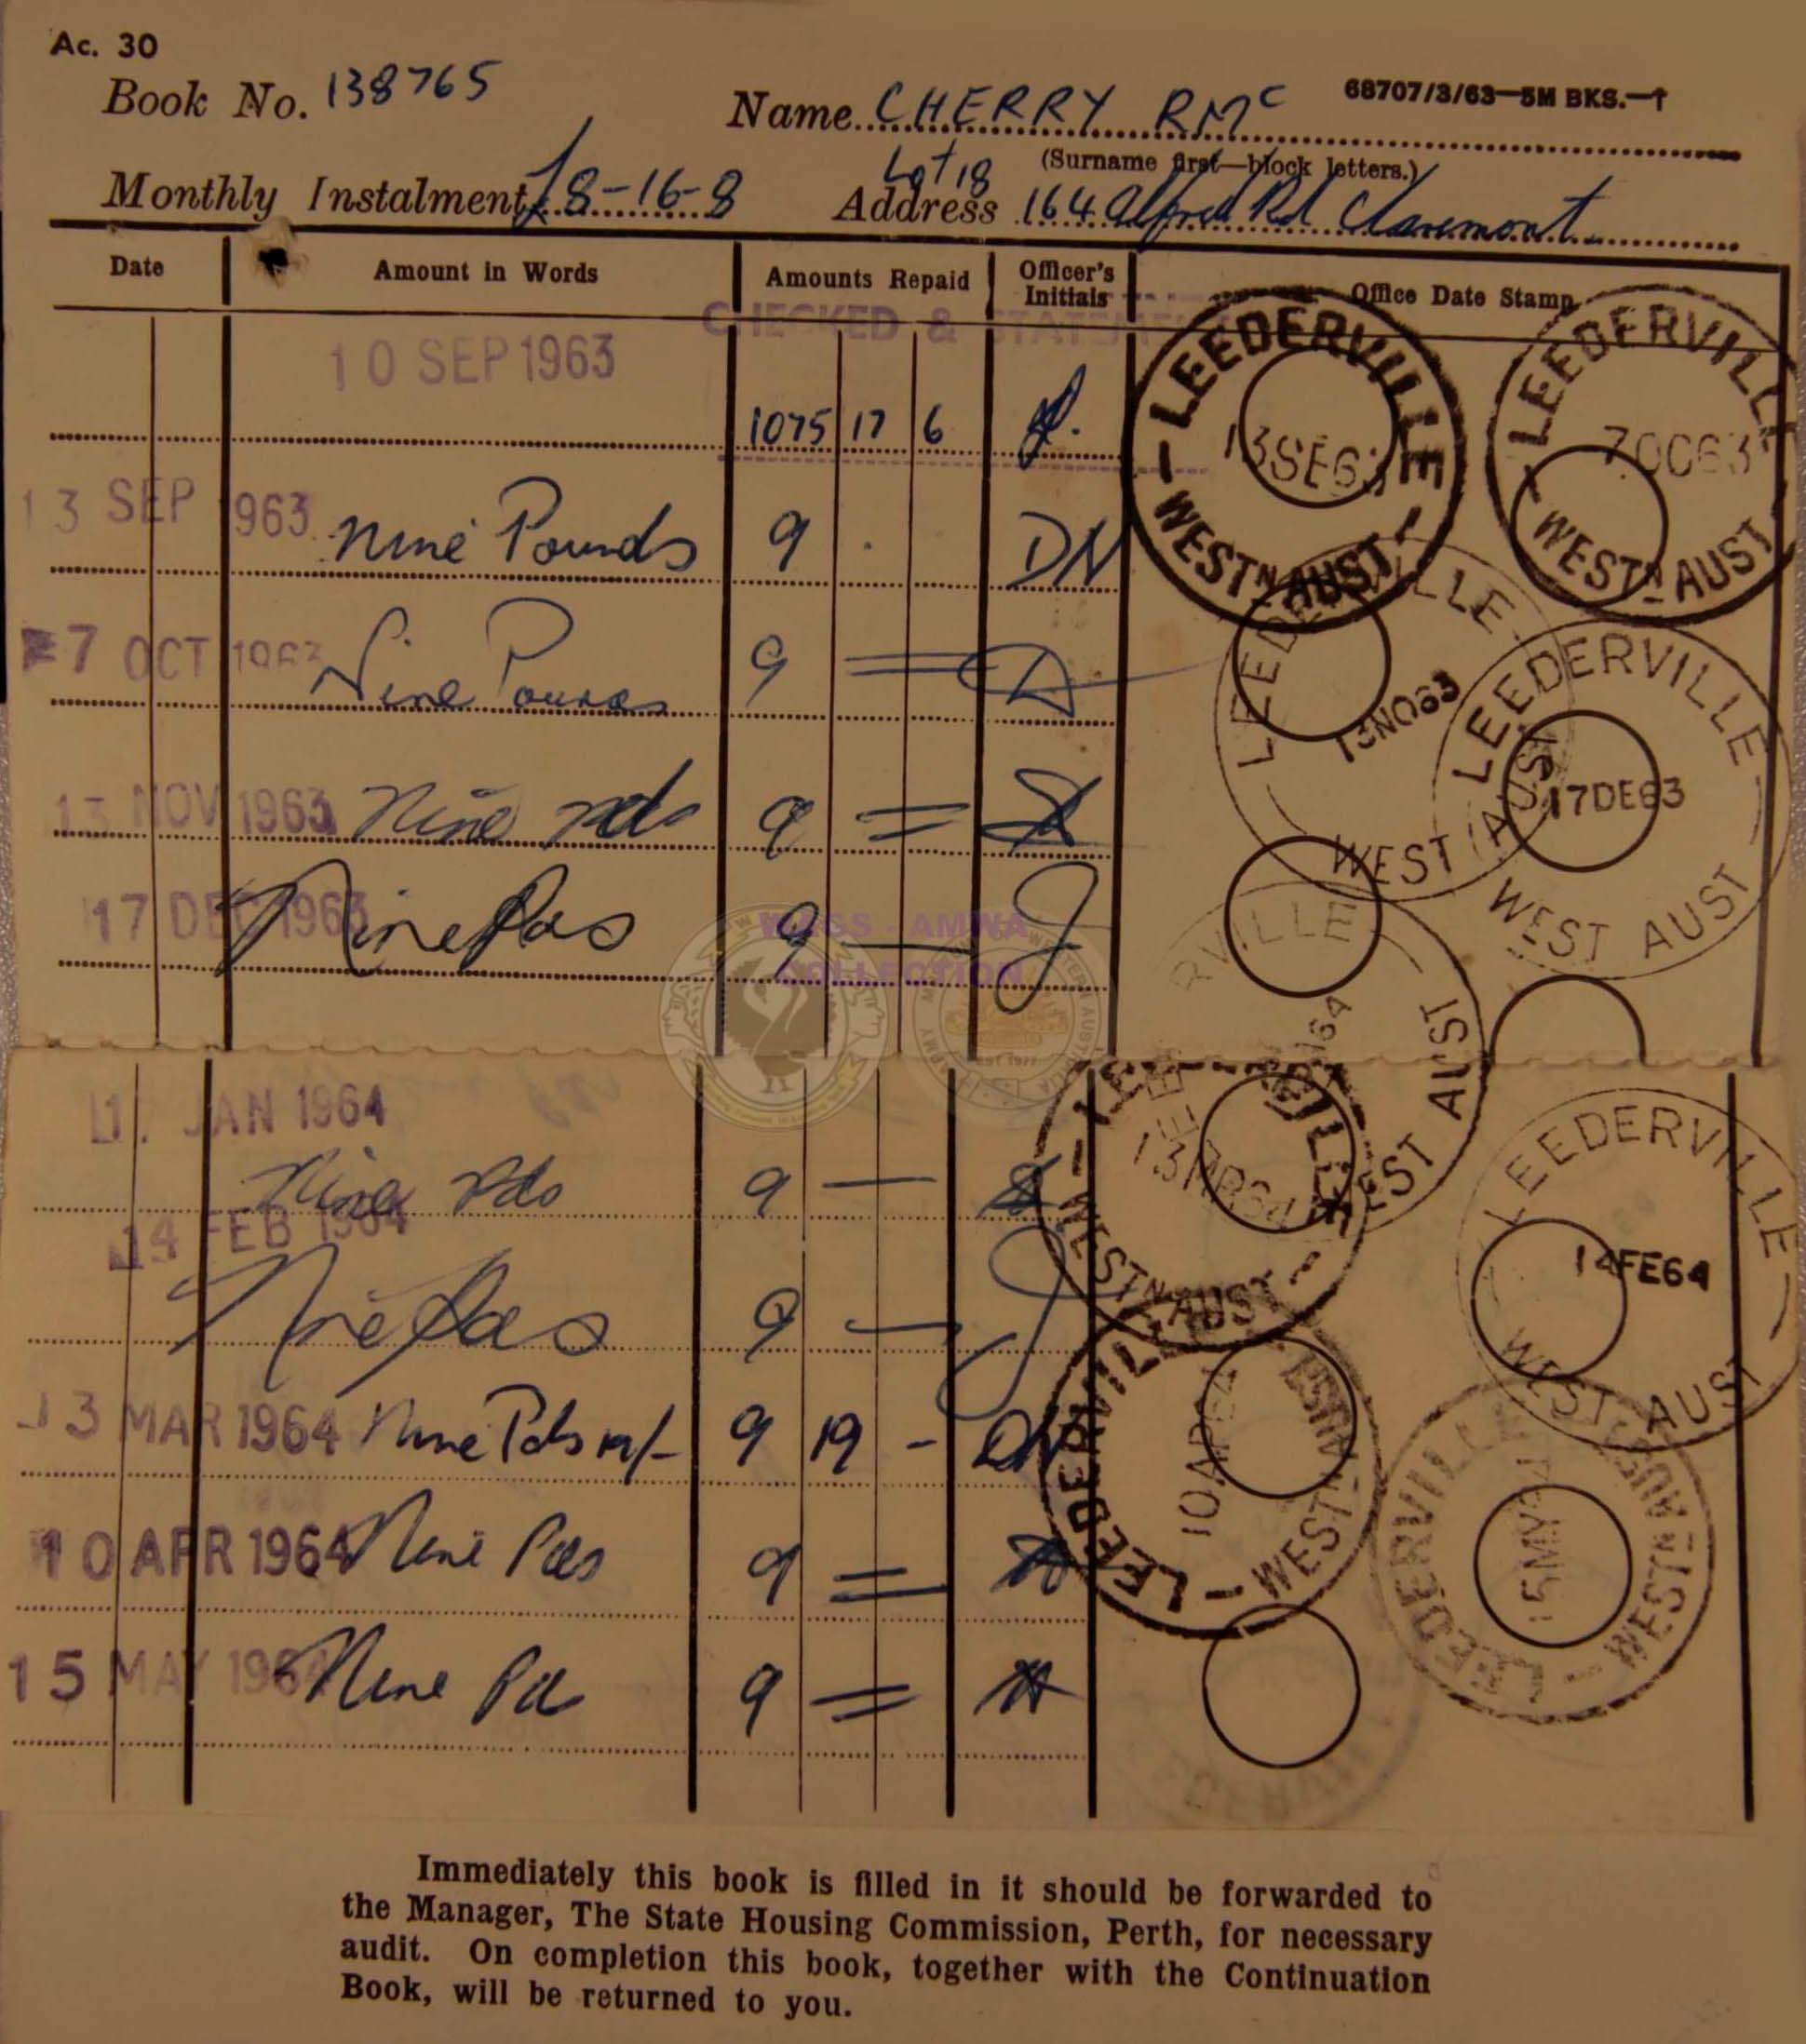 Ac. 30
Book No. 138765
Name CHERRY RMc
68707/3/63—5M BKS.—1
(Surname first—block letters.)
Monthly Instalment £8-16-8
Lot 18
Address 164 Alfred Rd Claremont
Date Amount in Words Amounts Repaid Officer's Initials Office Date Stamp
CHECKED & STATEMENT
10 SEP 1963
1075 17 6
LEEDERVILLE 13SE63 WESTN AUST
LEEDERVILLE 7OC63 WESTN AUST
13 SEP 1963 Nine Pounds 9 . DN
7 OCT 1963 Nine Pounds 9 =
LEEDERVILLE 13NO63 WEST AUST
LEEDERVILLE 17DE63 WEST AUST
13 NOV 1963 Nine Pds 9 =
17 DEC 1963 Nine Pds 9 —
WASS - AMWA
COLLECTION
RVILLE 64 WEST AUST
JAN 1964
Nine Pds 9 —
14 FEB 1964
Nine Pds 9 —
LEEDERVILLE 13MR64 WESTN AUST
LEEDERVILLE 14FE64 WEST AUST
13 MAR 1964 Nine Pds 19/- 9 19 - DN
LEEDERVILLE 10AP64 WESTN AUST
LEEDERVILLE 15MY64 WESTN AUST
10 APR 1964 Nine Pds 9 =
15 MAY 1964 Nine Pds 9 =
Immediately this book is filled in it should be forwarded to
the Manager, The State Housing Commission, Perth, for necessary
audit. On completion this book, together with the Continuation
Book, will be returned to you.